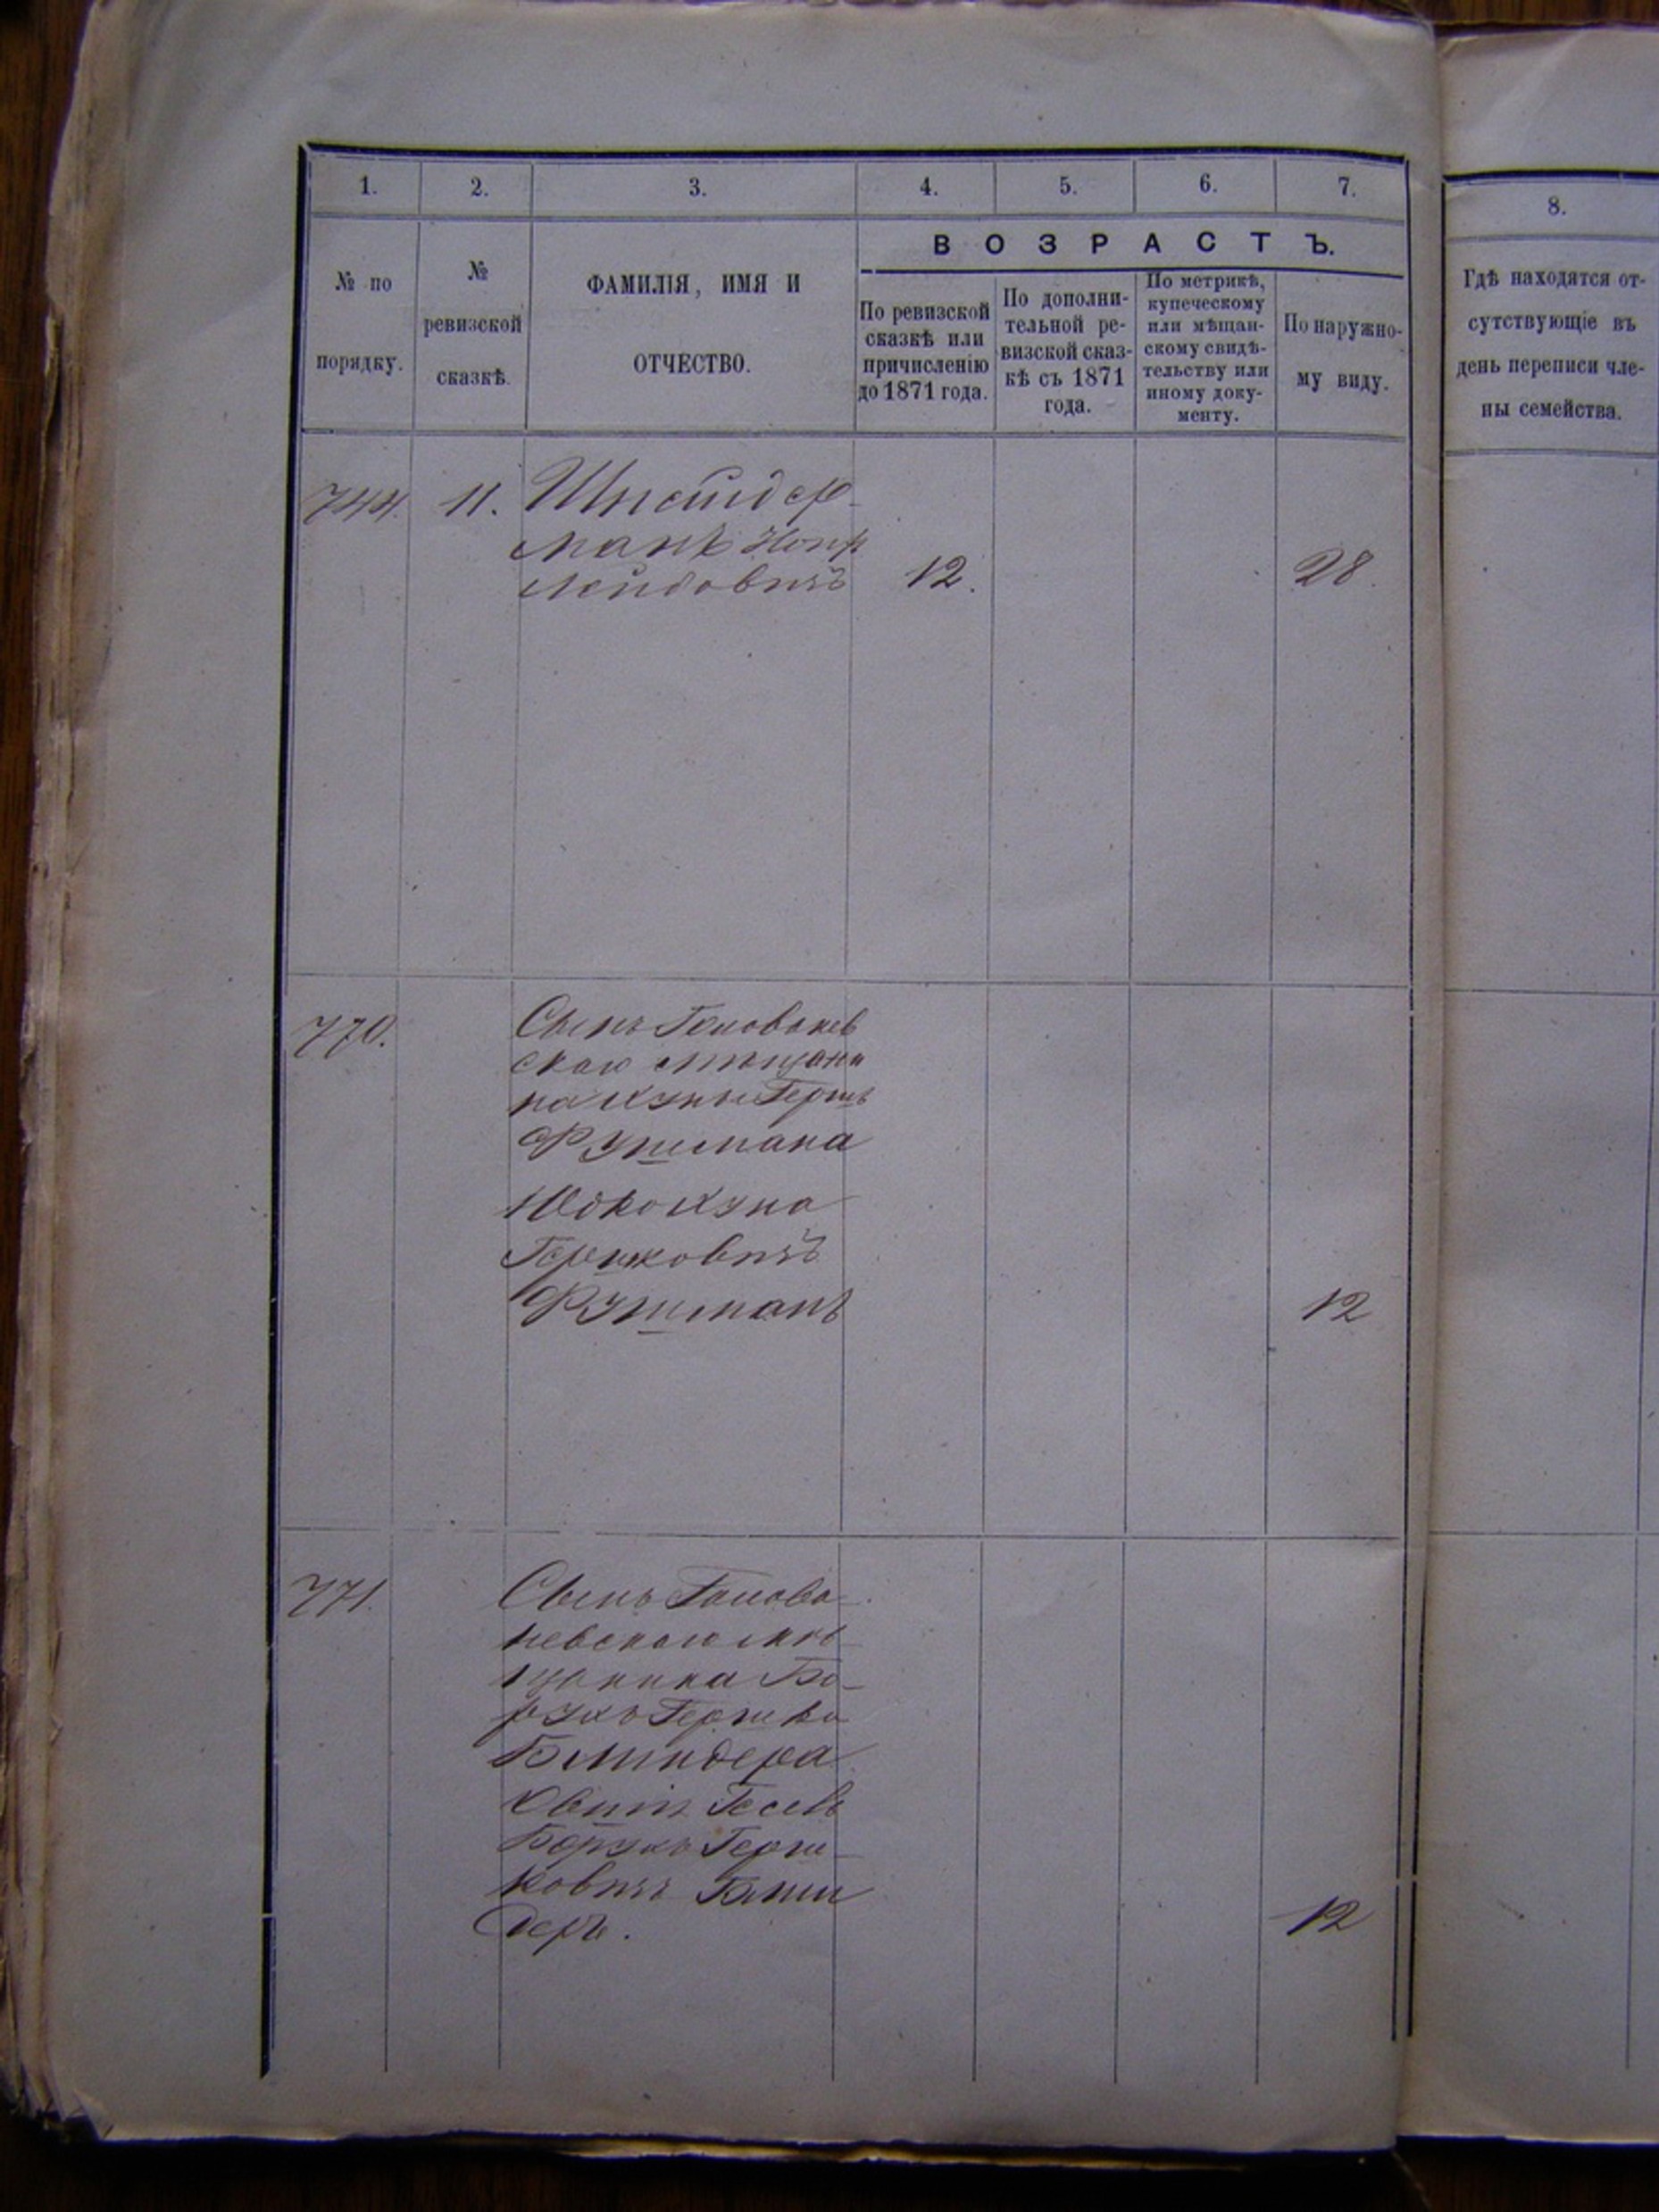 1.
2.
3.
4.
5.
6.
7.
8.
№ по
порядку.
№
ревизской
сказкѣ.
ФАМИЛІЯ, ИМЯ И
ОТЧЕСТВО.
ВОЗРАСТЪ.
По ревизской
сказкѣ или
причисленію
до 1871 года.
По дополни-
тельной ре-
визской сказ-
кѣ съ 1871
года.
По метрикѣ,
купеческому
или мѣщан-
скому свидѣ-
тельству или
иному доку-
менту.
По наружно-
му виду.
Гдѣ находятся от-
сутствующіе въ
день переписи чле-
ны семейства.
744. 11. Шнейдер-
манъ
Лейбовичъ 12. 28.
770. Сынъ Головонев
скаго мѣщани
на Гершъ
Фушмана
Гершковичъ
Фушманъ 12
771. Сынъ Голова-
невскаго мѣ-
щанина Бо-
рухъ Гершка
Блиндера
Борухъ Герш-
ковичъ Блин
деръ. 12